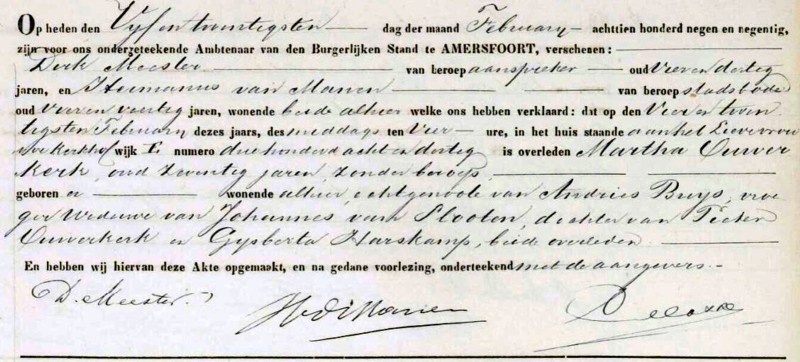 Op heden den Vijf en twintigsten dag der maand February achttien honderd negen en negentig,
zijn voor ons ondergeteekende Ambtenaar van den Burgerlijken Stand te AMERSFOORT, verschenen:
Dirk Meester van beroep aanspreker oud Vier en dertig
jaren, en Hermanus van Manen van beroep stadsbode
oud Vier en veertig jaren, wonende beide alhier welke ons hebben verklaard: dat op den Vier en twin
tigsten February dezes jaars, des middags ten Vier ure, in het huis staande aan het Lievevrou
we Kerkhof wijk E numero driehonderd acht en dertig is overleden Martha Ouwer
kerk, oud zeventig jaren zonder beroep
geboren wonende alhier, echtgenoote van Andries Buys, vroe
ger Weduwe van Johannes van Slooten, dochter van Pieter
Ouwerkerk en Gysberta Harskamp, beide overleden
En hebben wij hiervan deze Akte opgemaakt, en na gedane voorlezing, onderteekend met de aangevers.
D. Meester. HvManen